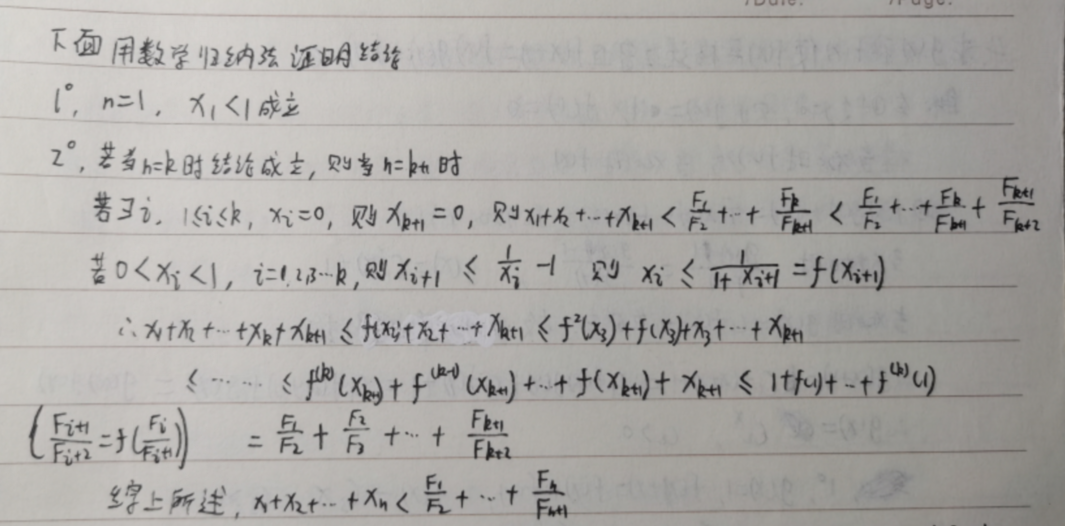 /Date: /Page:
下面用数学归纳法证明结论
1°, n=1, x₁<1成立
2°, 若当n=k时结论成立, 则当n=k+1时
若∃i, 1≤i≤k, xᵢ=0, 则xₖ₊₁=0, 则x₁+x₂+…+xₖ₊₁ < F₁/F₂+…+Fₖ/Fₖ₊₁ < F₁/F₂+…+Fₖ/Fₖ₊₁+Fₖ₊₁/Fₖ₊₂
若0<xᵢ<1, i=1,2,3…k, 则xᵢ₊₁ ≤ 1/xᵢ -1 则 xᵢ ≤ 1/(1+xᵢ₊₁) = f(xᵢ₊₁)
∴x₁+x₂+…+xₖ+xₖ₊₁ ≤ f(x₂)+x₂+…+xₖ₊₁ ≤ f²(x₃)+f(x₃)+x₃+…+xₖ₊₁
≤ …… ≤ f⁽ᵏ⁾(xₖ₊₁)+f⁽ᵏ⁻¹⁾(xₖ₊₁)+…+f(xₖ₊₁)+xₖ₊₁ ≤ 1+f(1)+…+f⁽ᵏ⁾(1)
(Fᵢ₊₁/Fᵢ₊₂=f(Fᵢ/Fᵢ₊₁)) = F₁/F₂+F₂/F₃+…+Fₖ₊₁/Fₖ₊₂
综上所述, x₁+x₂+…+xₙ < F₁/F₂+…+Fₙ/Fₙ₊₁